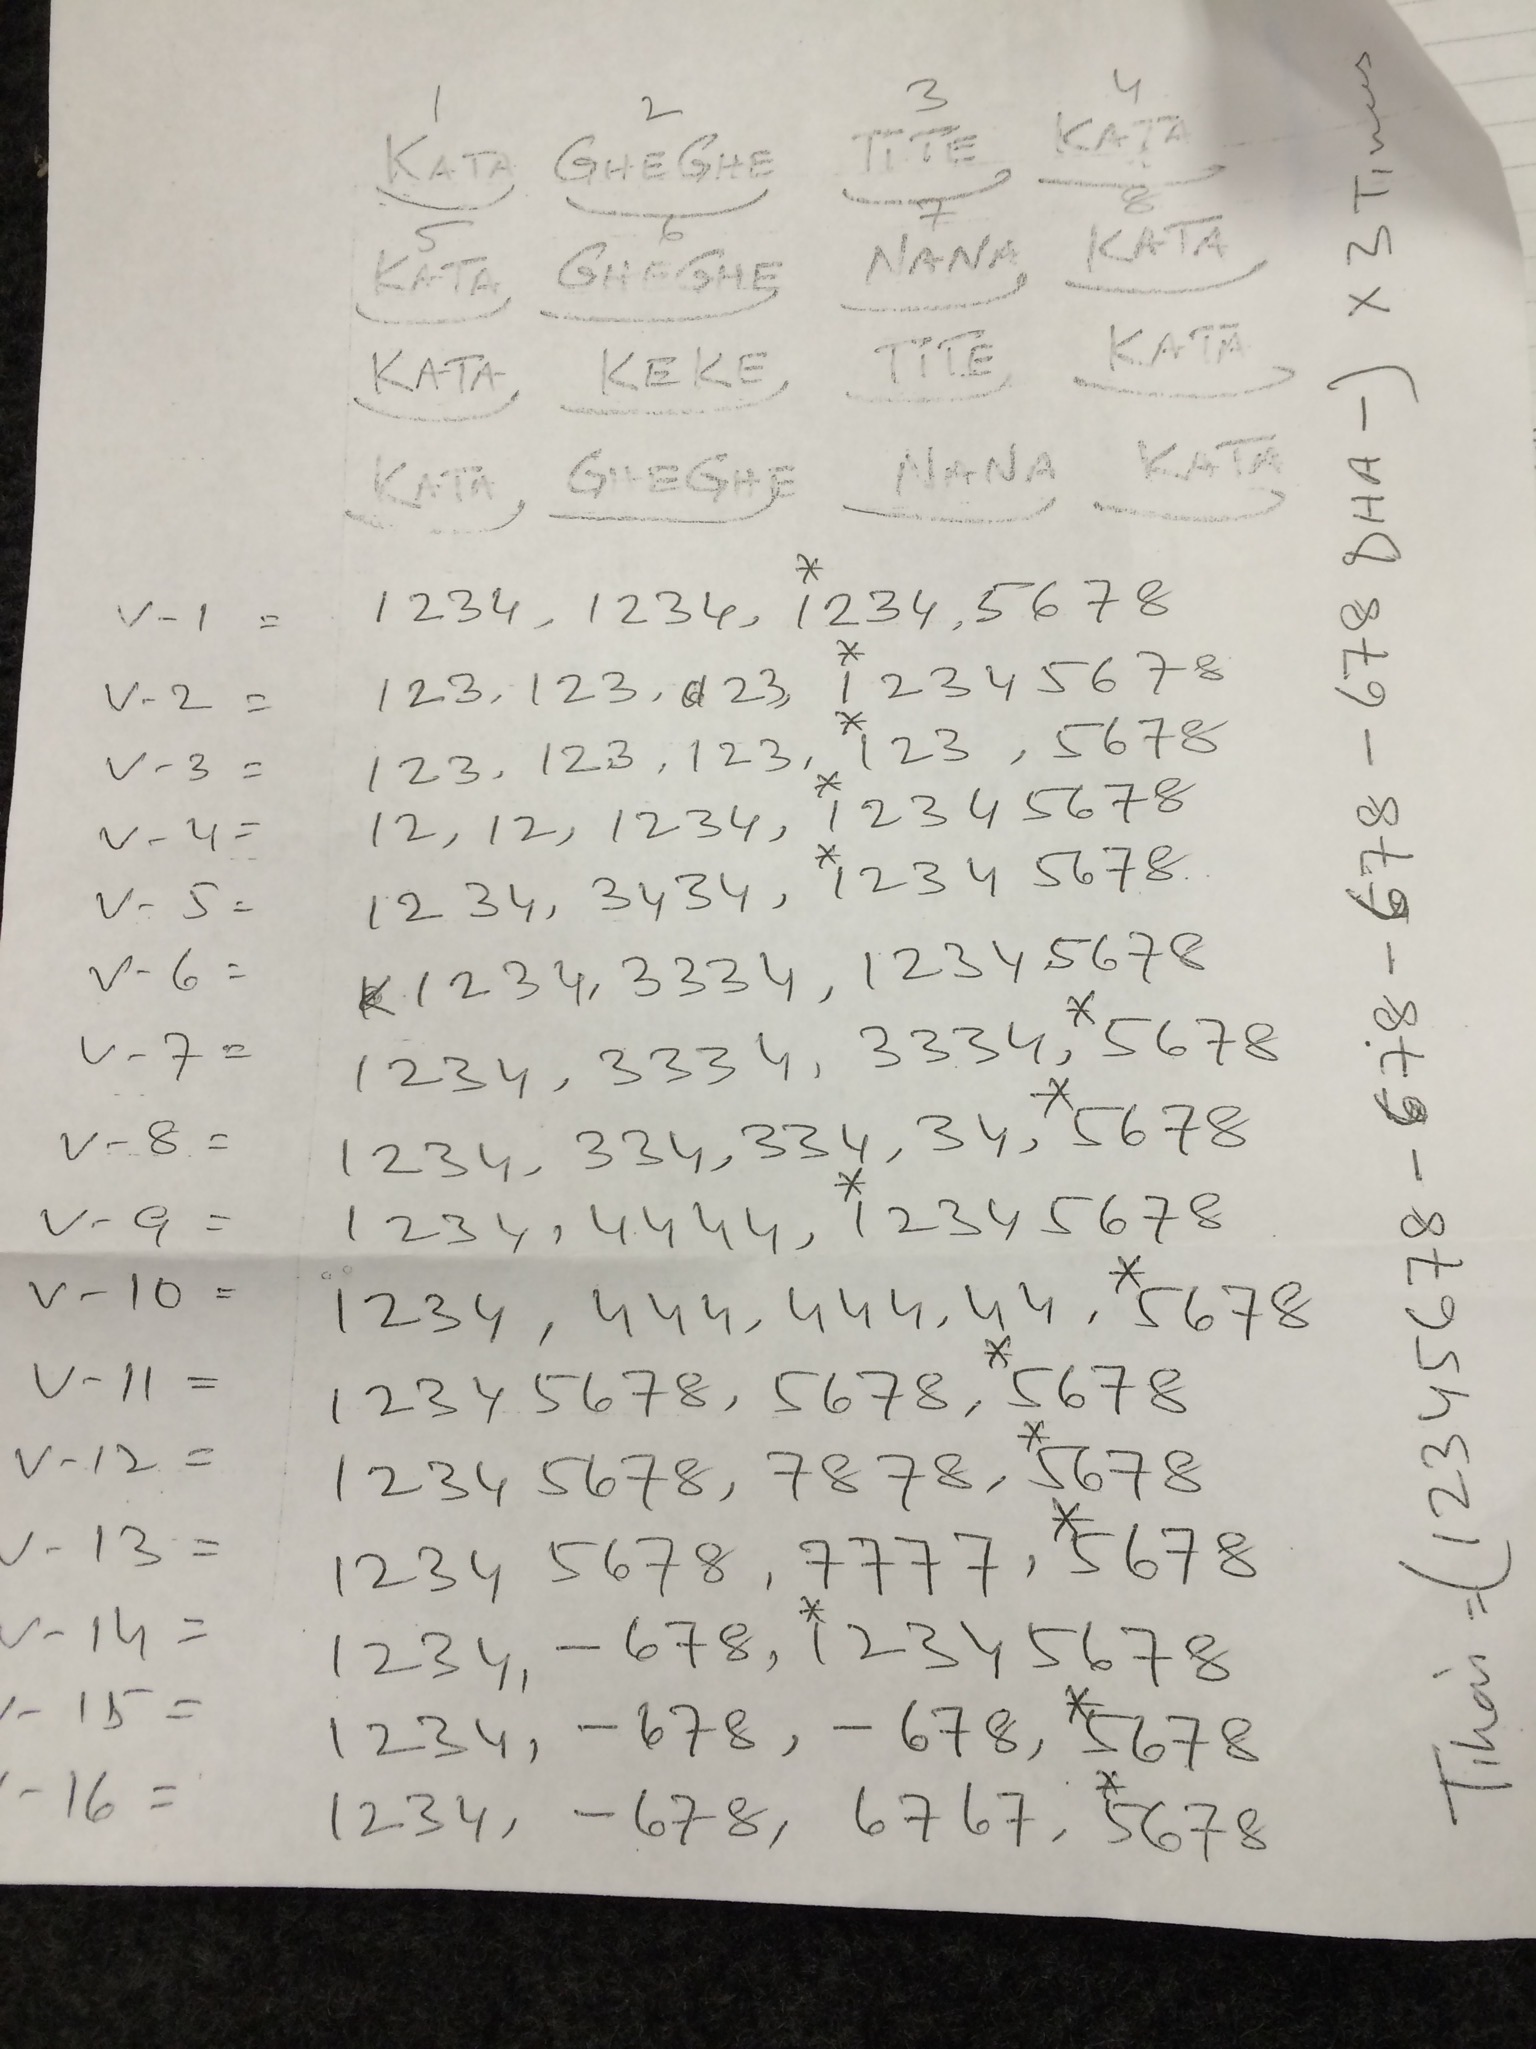 1 2 3 4
KATA GHEGHE TITE KATA
5 6 7 8
KATA GHEGHE NANA KATA
KATA KEKE TITE KATA
KATA GHEGHE NANA KATA
V-1 = 1234, 1234, *1234, 5678
V-2 = 123, 123, 123, *12345678
V-3 = 123, 123, 123, *123, 5678
V-4 = 12, 12, 1234, *12345678
V-5 = 1234, 3434, *12345678
V-6 = 1234, 3334, 12345678
V-7 = 1234, 3334, 3334, *5678
V-8 = 1234, 334, 334, 34, *5678
V-9 = 1234, 4444, *12345678
V-10 = 1234, 444, 444, 44, *5678
V-11 = 12345678, 5678, *5678
V-12 = 12345678, 7878, *5678
V-13 = 12345678, 7777, *5678
V-14 = 1234, -678, *12345678
V-15 = 1234, -678, -678, *5678
-16 = 1234, -678, 6767, *5678
Tihai = (12345678-678-678-678-678 DHA-) x 3 Times